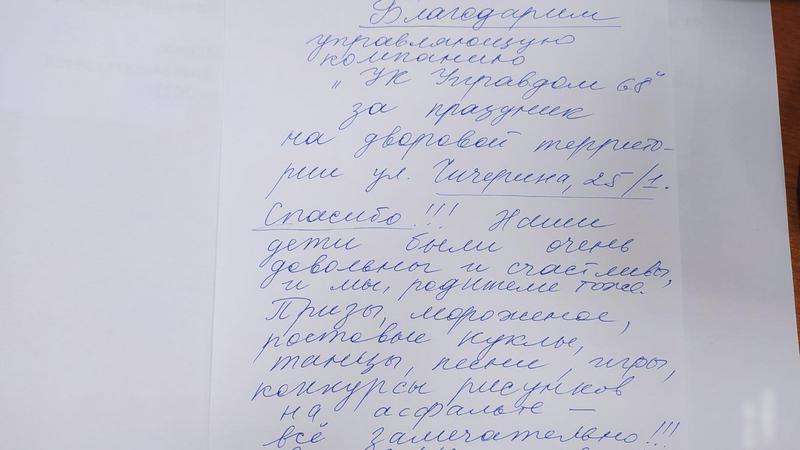 Благодарим
управляющую
компанию
"УК Управдом 68"
за праздник
на дворовой террито-
рии ул. Чичерина, 25/1.
Спасибо!!! Наши
дети были очень
довольны и счастливы,
и мы, родители тоже.
Призы, мороженое,
ростовые куклы,
танцы, песни, игры,
конкурсы рисунков
на асфальте –
всё замечательно!!!